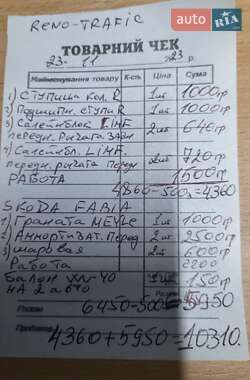 AUTO RIA
RENO-TRAFIC
ТОВАРНИЙ ЧЕК
23 11 23р.
Найменування товару К-сть Ціна Сума
1) СТУПИЦА КОЛ. R 1шт 1000гр
2) Подшипн. СТУПИ 1шт 1000гр
3) Сайлентблок LIMF 2шт 640гр
передн. рычага задн
4) Сайлентбл. LIMF. 2шт 720гр
передн. рычага перед
РАБОТА 1500гр
4860-500=4360
SKODA FABIA
1) Граната MEYLE 1шт 1000гр
2) Амортизат. Перед 2шт 2500гр
3) шаровая 2шт 600гр
Работа 2200
Балон WD-40 1шт 150гр
НА 2 авто
Разом
6450-500=5950
4360+5950=10310.